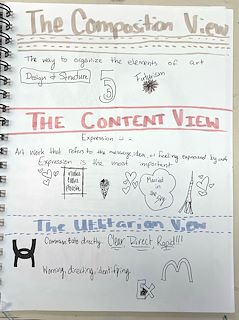 The Composition View
The way to organize the elements of art
Design & Structure
Futurism
THE CONTENT VIEW
Expression
Art work that refers to the message, idea, or feeling expressed by
Expression is the most important
Married in the sky
The Utilitarian View
Communicate directly Clear Direct Rapid!!!
Warning, directing, identifying